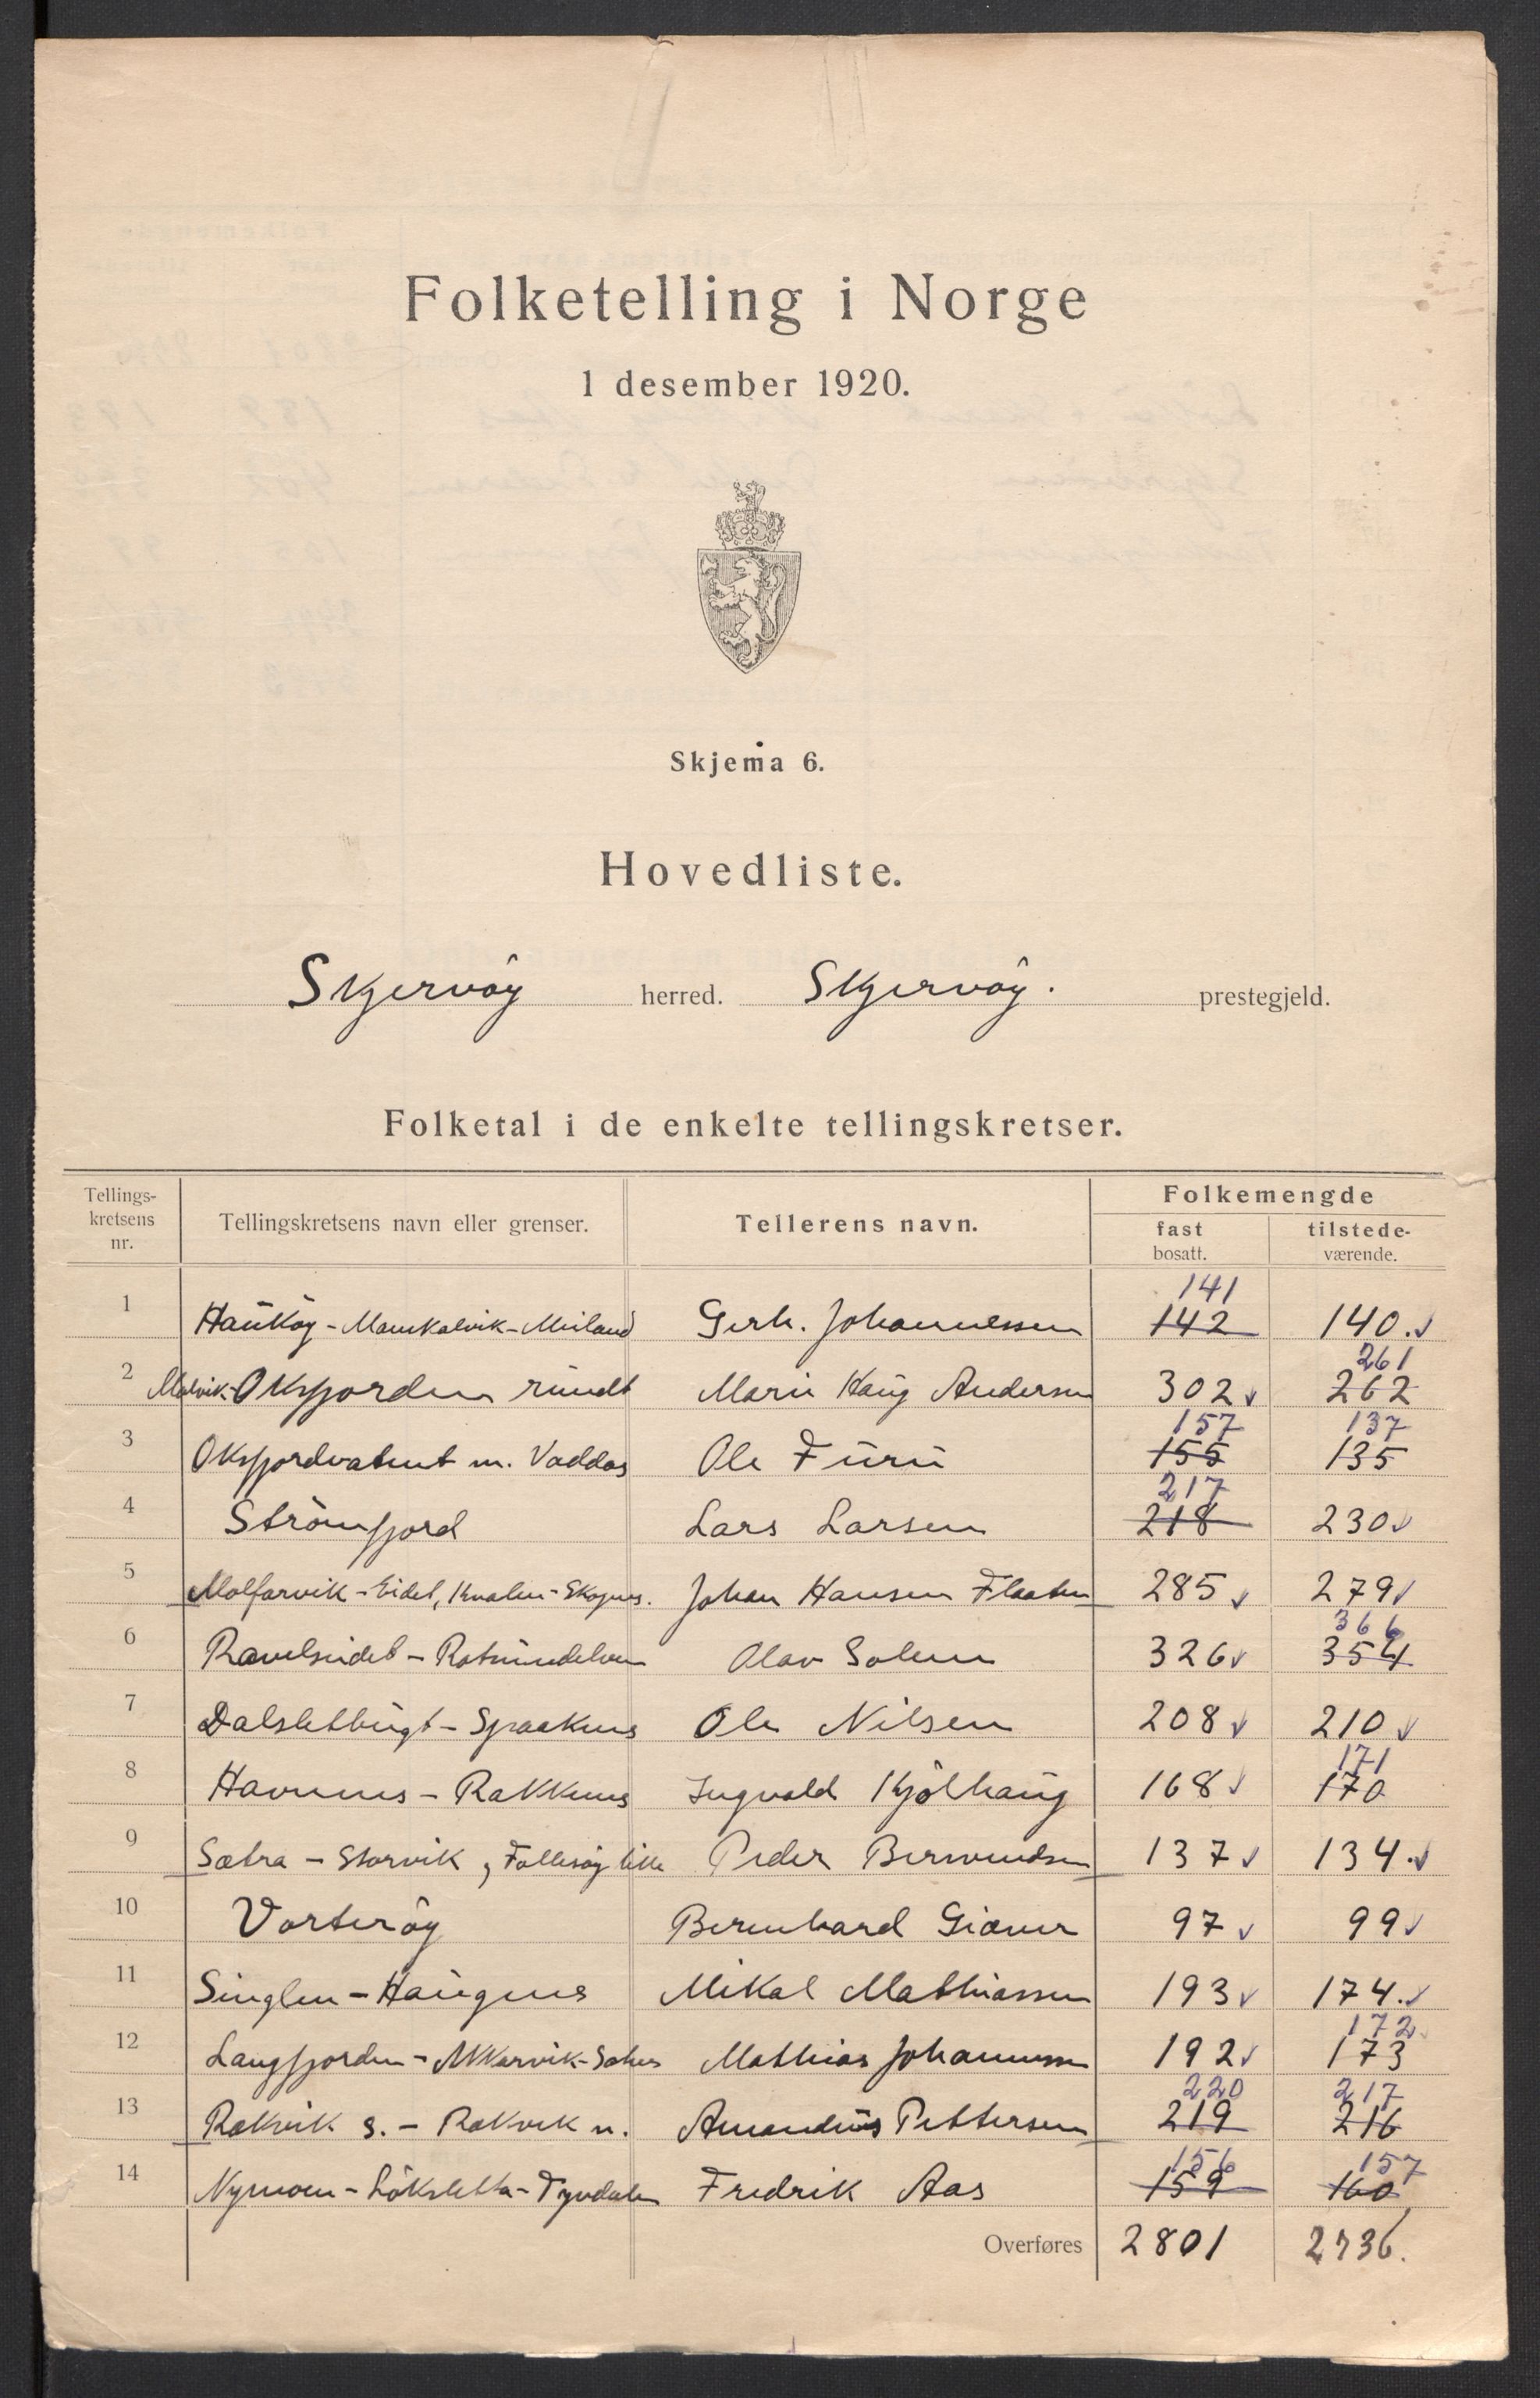 Folketelling i Norge
1 desember 1920.
Skjema 6.
Hovedliste.
Skjervöy herred. Skjervöy. prestegjeld.
Folketal i de enkelte tellingskretser.
Tellings-kretsens nr. Tellingskretsens navn eller grenser. Tellerens navn. Folkemengde fast bosatt. tilstede-værende.
141
1 Hauköy - Maurkalvik - Meiland Gerh. Johannessen 142 140.
261
2 Malvik - Oksfjorden rundt Marie Haug Andersen 302 262
157 137
3 Oksfjordvatnet m. Vaddas Ole Furu 155 135
217
4 Strömfjord Lars Larsen 218 230
5 Molfarvik - Eidet, Kvalen - Skognes. Johan Hansen Flaaten 285 279
366
6 Ravelseidet - Rotsundelven Olav Solem 326 354
7 Dalsletbugt - Spraaknes Ole Nilsen 208 210
171
8 Havnnes - Rakkenes Ingvald Kjölhaug 168 170
9 Sætra - Storvik, Follesöy lille Peder Berntsen 137 134.
10 Vorteröy Bernhard Giæver 97 99
11 Singlen - Haugnes Mikal Mathiassen 193 174.
172
12 Langfjorden - Akkarvik - Mathias Johannessen 192 173
220 217
13 Rakvik s. - Rakvik n. Amandus Pettersen 219 216
156 157
14 Nymoen - Löksletta - Tyvdalen Fredrik Aas 159 160
Overføres 2801 2736.